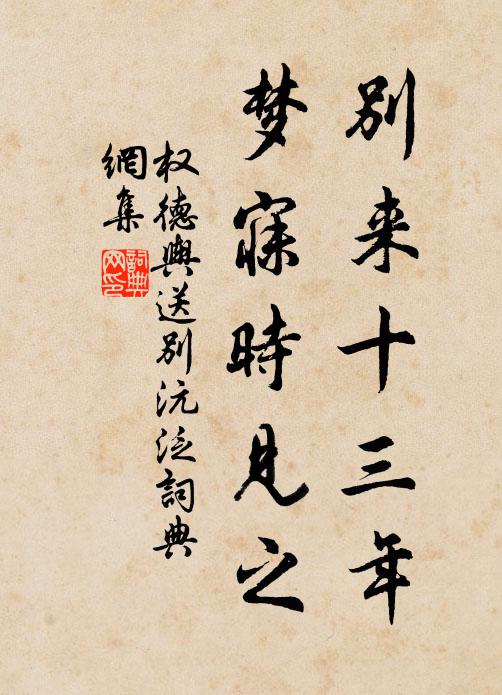 別来十三年
梦寐時見之
权德輿送别沅泛詞典
網集
詞典
网印